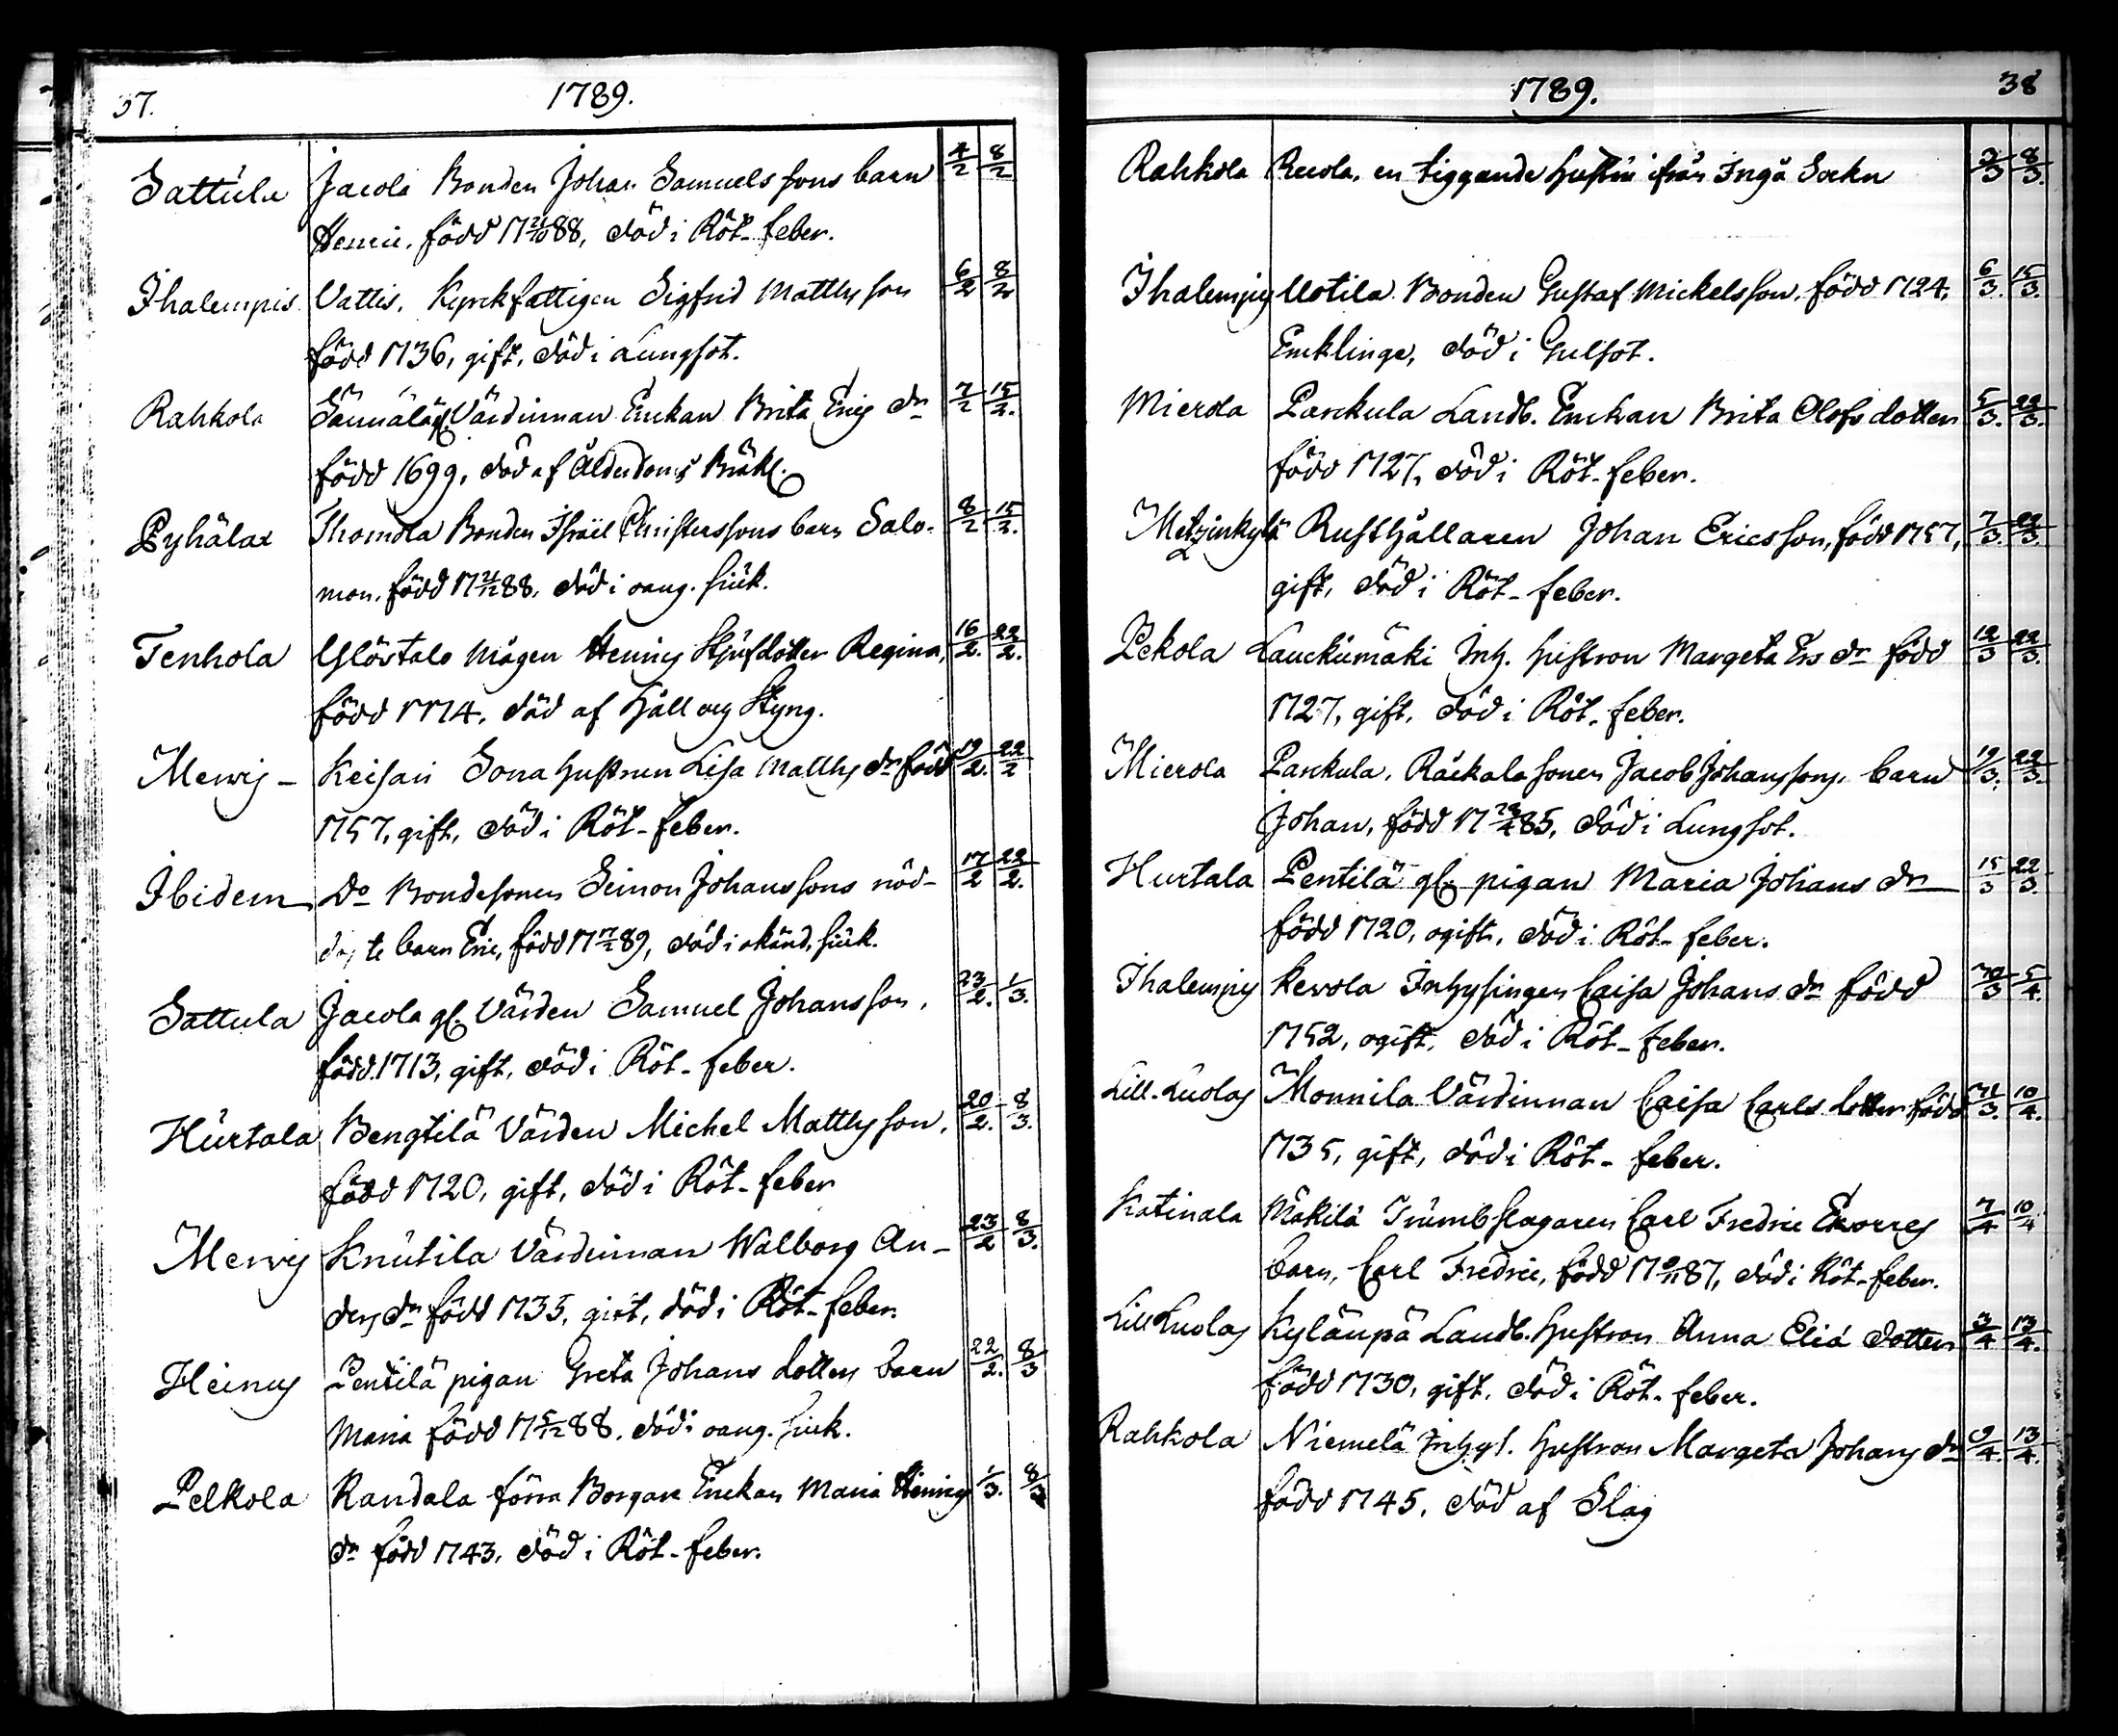 37. 1789.
Sattula Jacola Bonden Johan Samuelssons barn 4/2 8/2
Henric, född 17 21/10 88, död i Röt-feber.
Ihalempis Vattis, Kyrckfattigen Sigfrid Matthsson 6/2 8/2
född 1736, gift, död i Lungsot.
Rahkola Värdinnan Enckan Brita Erics dr 7/2 15/2.
född 1699, död af Ålderdoms Bräkl.
Pyhälax Thomola Bonden Israël Christerssons barn Salo- 8/2 15/2.
mon, född 17 21/12 88, död i oang. siuk.
Tenhola Ylöstalo Mågen Henrics Stjufdotter Regina, 16/2. 22/2.
född 1774, död af Håll och Styng.
Mervis - Keisari Sona Hustrun Lisa Matths dr född 19/2. 22/2
1757, gift, död i Röt-feber.
Ibidem Do Bondesonen Simon Johanssons nöd- 17/2 22/2.
döpte barn Eric, född 17 17/2 89, död i okänd siuk.
Sattula Jacola gl. Värden Samuel Johansson, 23/2. 1/3.
född 1713, gift, död i Röt-feber.
Hurtala Bengtilä Värden Michel Matthsson, 20/2. 8/3.
född 1720, gift, död i Röt-feber
Mervis Knutila Värdinnan Walborg An- 23/2 8/3.
ders dr född 1735, gift, död i Röt-feber.
Heinus Pentilä pigan Greta Johans dotters barn 22/2. 8/3
Maria född 17 5/12 88, död i oang. siuk.
Pelkola Randala förra Borgare Enckan Maria Henrics 1/3. 8/3
dr född 1743, död i Röt-feber.
1789. 38
Rahkola Recola, en tiggande Hustru ifrån Ingå Sockn 3/3 8/3.
Ihalempis Uotila Bonden Gustaf Mickelsson, född 1724, 6/3. 15/3.
Encklinge, död i Gulsot.
Mierola Panckula Landb. Enckan Brita Olofs dotter 5/3. 22/3.
född 1727, död i Röt-feber.
Metzinkylä Rusthållaren Johan Ericsson, född 1757, 7/3. 22/3.
gift, död i Röt-feber.
Pekola Lauckumäki Inh. Hustron Margeta Ers dr född 12/3 22/3.
1727, gift, död i Röt-feber.
Mierola Panckula, Räckala sonen Jacob Johanssons barn 19/3. 22/3.
Johan, född 17 85, död i Lungsot.
Hurtala Pentilä gl. pigan Maria Johans dr 15/3 22/3.
född 1720, ogift, död i Röt-feber.
Ihalempis Kerola Inhysingen Caisa Johans dr född 30/3 5/4.
1752, ogift, död i Röt-feber.
Lill-Luolas Monnila Värdinnan Caisa Carls dotter född 31/3. 10/4.
1735, gift, död i Röt-feber.
Katinala Mäkilä Trumbslagaren Carl Fredric Ekorres 7/4 10/4
barn, Carl Fredric, född 17 87, död i Röt-feber.
Lill Luolas Kylänpä Landb. Hustron Anna Eliä dotter 3/4 13/4.
född 1730, gift, död i Röt-feber.
Rahkola Niemelä Inhys. Hustron Margeta Johans dr 9/4. 13/4.
född 1745, död af Slag